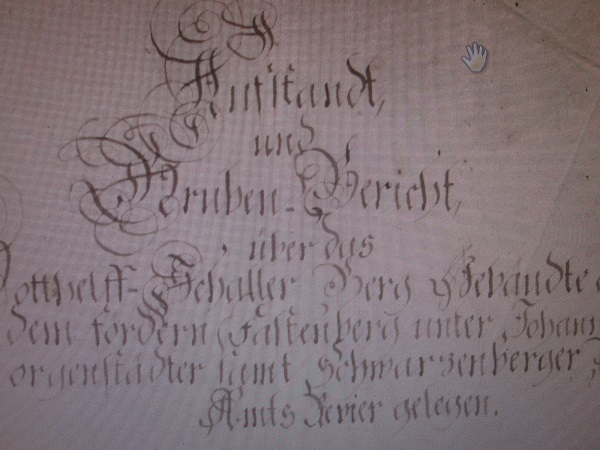 Aufstandt,
und
Gruben-Bericht,
über das
Gotthelff-Schaller Berg Gebäudte
dem fördern Fastenberg unter Johann
orgenstädter samt Schwarzenberger
Amts Revier gelegen.